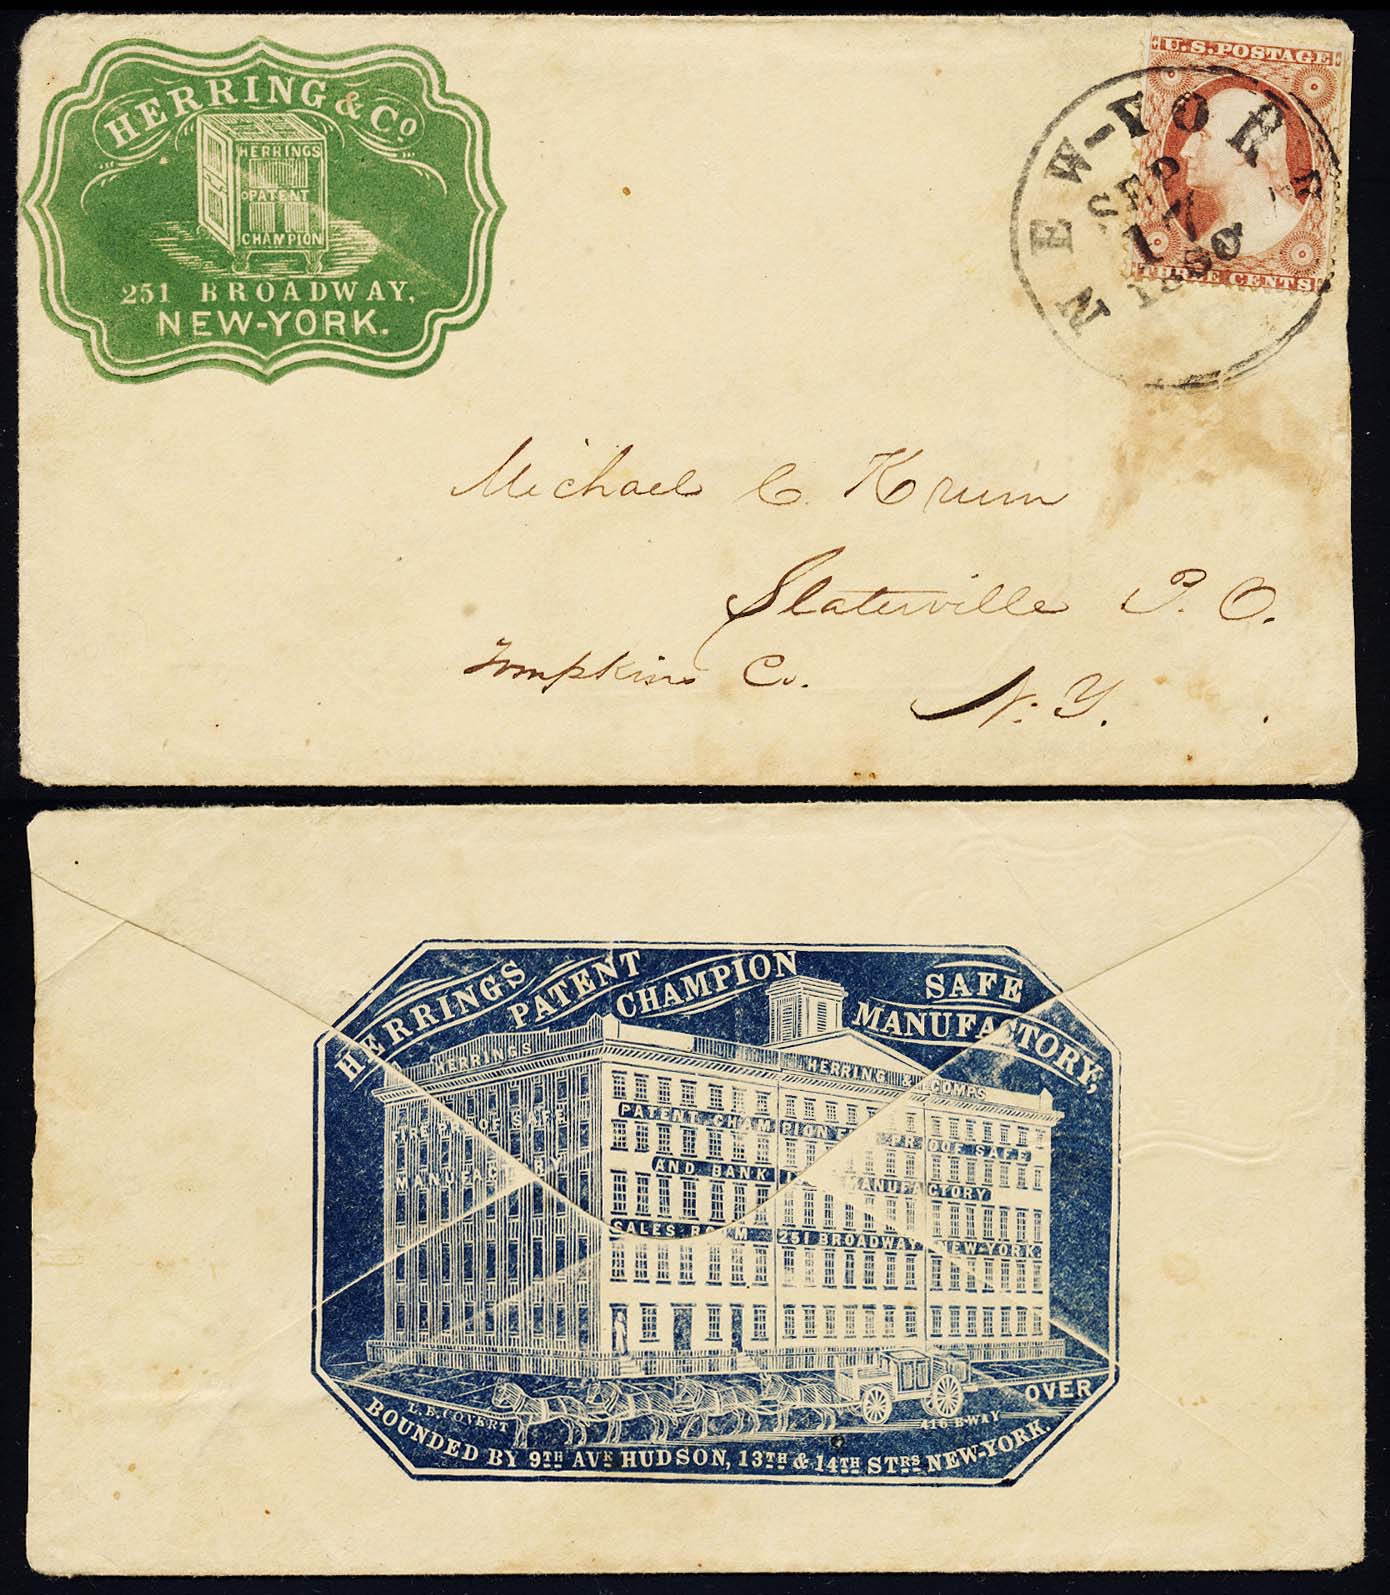 HERRING & Co
HERRINGS
PATENT
CHAMPION
251 BROADWAY,
NEW-YORK.
U.S. POSTAGE
THREE CENTS
NEW-YORK
SEP
17
1860
Michael C Krum
Slaterville P. O.
Tompkins Co.
N. Y.
HERRINGS PATENT CHAMPION SAFE MANUFACTORY,
HERRINGS
FIRE PROOF SAFE
MANUFACTORY
HERRING & COMPS
PATENT CHAMPION FIRE PROOF SAFE
AND BANK MANUFACTORY
SALES ROOM 251 BROADWAY NEW-YORK.
L. B. COVERT
416 BWAY
OVER
BOUNDED BY 9TH AVE HUDSON, 13TH & 14TH STRS NEW-YORK.